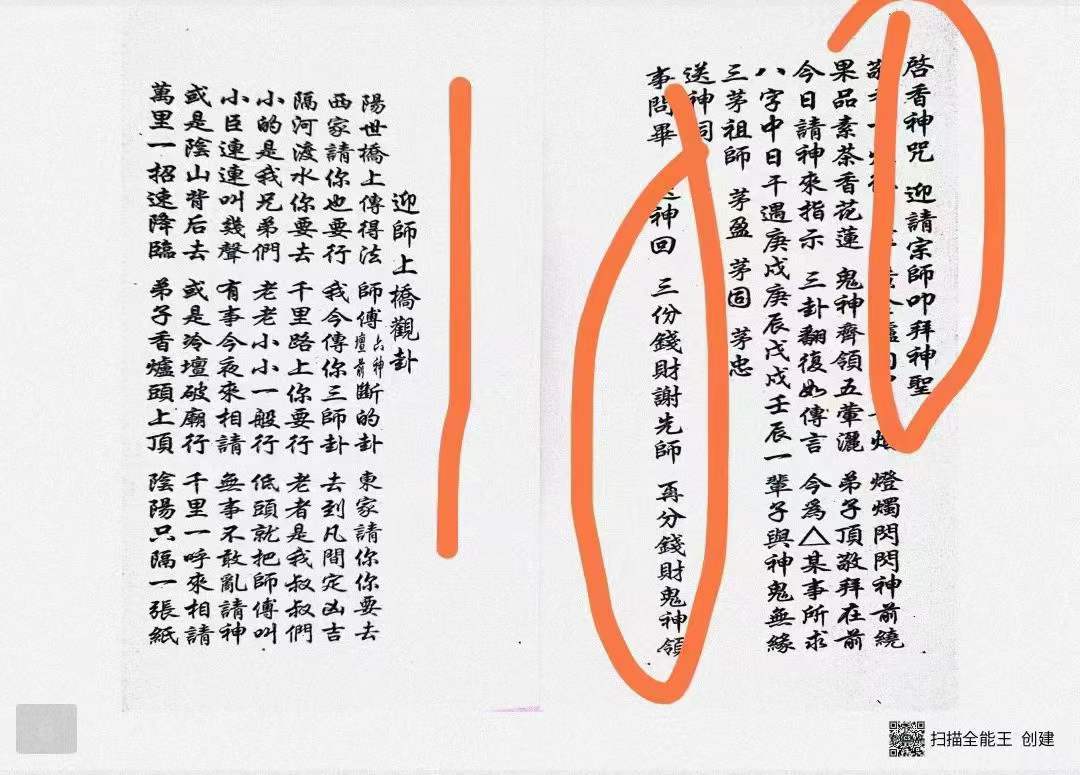 啓香神咒 迎請宗師叩拜神聖
燈燭閃閃神前繞
果品素茶香花蓮 鬼神齊領五葷灑 弟子頂敬拜在前
今日請神來指示 三卦翻復如傳言 今為△某事所求
八字中日干遇庚戌庚辰戊戌壬辰一輩子與神鬼無緣
三茅祖師 茅盈 茅固 茅忠
送神詞
事問畢 神回 三份錢財謝先師 再分錢財鬼神領
迎師上橋觀卦
陽世橋上傳得法 師傅六神壇前斷的卦 東家請你你要去
西家請你也要行 我今傳你三師卦 去到凡間定凶吉
隔河渡水你要去 千里路上你要行 老者是我叔叔們
小的是我兄弟們 老老小小一般行 低頭就把師傅叫
小臣連連叫幾聲 有事今夜來相請 無事不敢亂請神
或是陰山背后去 或是冷壇破廟行 千里一呼來相請
萬里一招速降臨 弟子香爐頭上頂 陰陽只隔一張紙
扫描全能王 创建